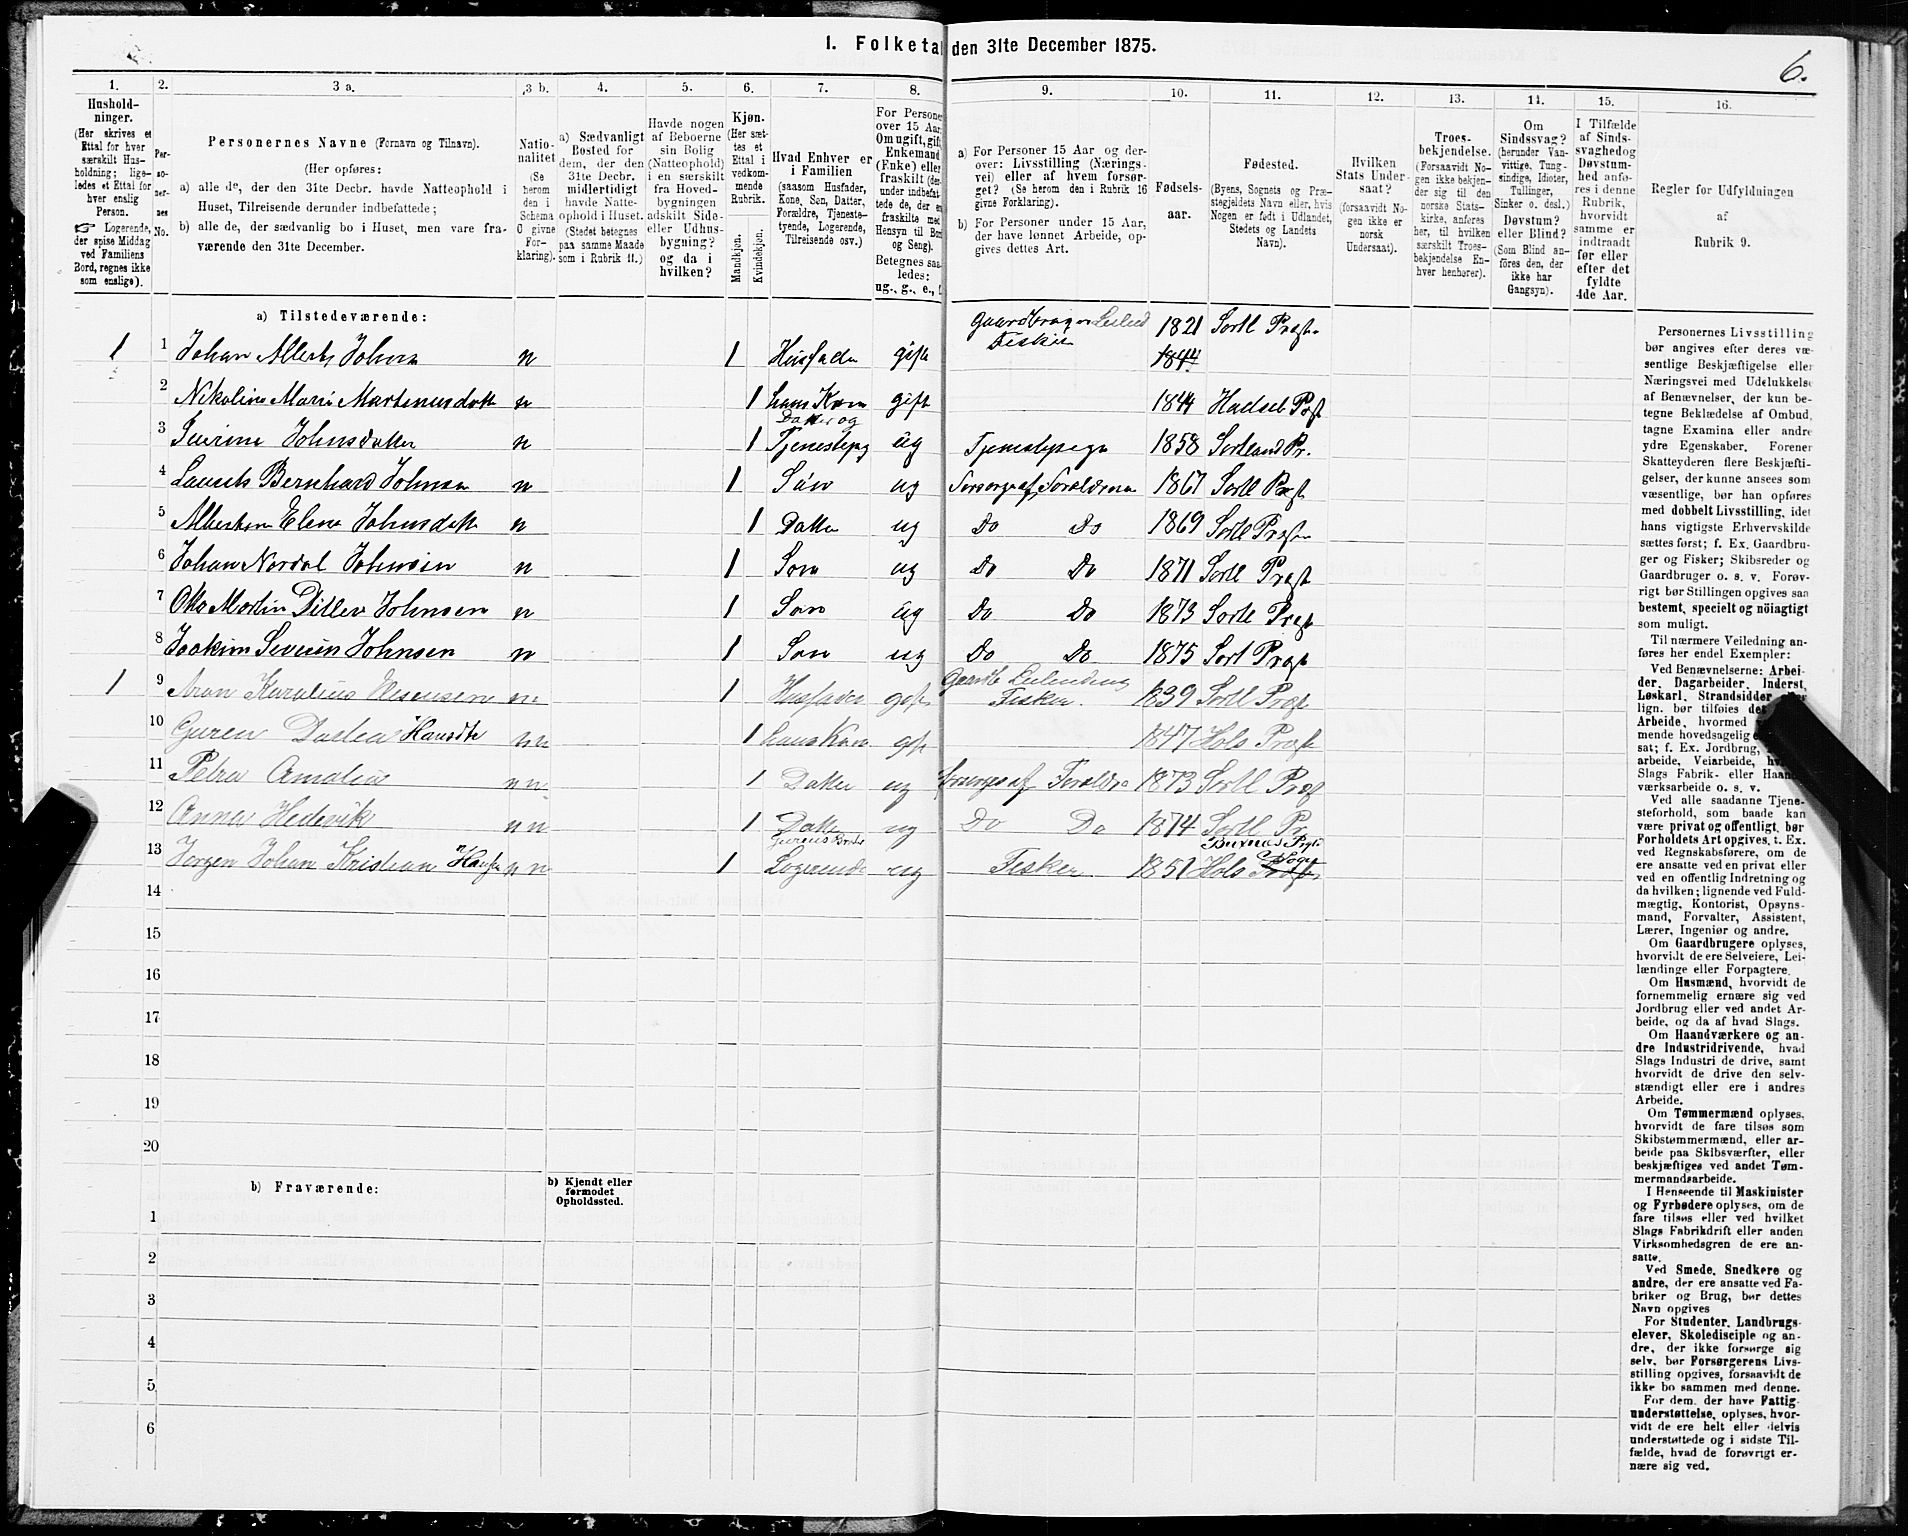 1. Folketal den 31te December 1875.
6.
1.
Hushold-
ninger.
(Her skrives et
Ettal for hver
særskilt Hus-
holdning; lige-
ledes et Ettal for
hver enslig
Person.
☞ Logerende,
der spise Middag
ved Familiens
Bord, regnes ikke
som enslige).
2.
Per-
so-
ner-
nes
No.
3 a.
Personernes Navne (Fornavn og Tilnavn).
(Her opføres:
a) alle de, der den 31te Decbr. havde Natteophold i
Huset, Tilreisende derunder indbefattede;
b) alle de, der sædvanlig bo i Huset, men vare fra-
værende den 31te December.
3 b.
Natio-
nalitet
(Se
herom
den i
Schema
O givne
For-
klaring).
4.
a) Sædvanligt
Bosted for
dem, der den
31te Decbr.
midlertidigt
havde Natte-
ophold i Huset.
(Stedet betegnes
paa samme Maade
som i Rubrik 11.)
5.
Havde nogen
af Beboerne
sin Bolig
(Natteophold)
i en særskilt
fra Hoved-
bygningen
adskilt Side-
eller Udhus-
bygning?
og da i
hvilken?
6.
Kjøn.
(Her sæt-
tes et
Ettal i
vedkom-
mende
Rubrik.
Mandkjøn.
Kvindekjøn.
7.
Hvad Enhver er
i Familien
(saasom Husfader,
Kone, Søn, Datter,
Forældre, Tjeneste-
tyende, Logerende,
Tilreisende osv.)
8.
For Personer
over 15 Aar
Om ugift, gift,
Enkemand
(Enke) eller
fraskilt
Betegnes saa-
ledes:
ug., g., e.,
9.
a) For Personer 15 Aar og der-
over: Livsstilling (Nærings-
vei) eller af hvem forsør-
get? (Se herom den i Rubrik 16
givne Forklaring).
b) For Personer under 15 Aar,
der have lønnet Arbeide, op-
gives dettes Art.
10.
Fødsels-
aar.
11.
Fødested.
(Byens, Sognets og Præ-
stegjeldets Navn eller, hvis
Nogen er født i Udlandet,
Stedets og Landets
Navn).
12.
Hvilken
Stats Under-
saat?
(forsaavidt No-
gen ikke er
norsk
Undersaat).
13.
Troes-
bekjendelse.
(Forsaavidt No-
gen ikke bekjen-
der sig til den
norske Stats-
kirke, anføres
her, til hvilken
særskilt Troes-
bekjendelse En-
hver henhører).
14.
Om
Sindssvag?
(herunder Van-
vittige, Tung-
sindige, Idioter,
Tullinger,
Sinker o. desl.)
Døvstum?
eller Blind?
(Som Blind an-
føres den, der
ikke har
Gangsyn).
15.
I Tilfælde
af Sinds-
svaghed og
Døvstum-
hed anfø-
res i denne
Rubrik,
hvorvidt
samme er
indtraadt
før eller
efter det
fyldte
4de Aar.
16.
Regler for Udfyldningen
af
Rubrik 9.
a) Tilstedeværende:
1 1 Johan Alberts Johns n 1 Husfader gift Gaardbruger Leilend Fisker 1821 1844 Sortl Prgst.
2 Nikoline Marie Martinusdatt n 1 hans Kone gift 1844 Hadsel Pgst
3 Sevrine Johnsdatter n 1 Datter og Tjenestepg ug Tjenestepige 1858 Sortland Pr.
4 Laurits Bernhard Johnsen n 1 Søn ug Forsørges af Foraldrene 1867 Sortl Prgst
5 Albertine Elene Johnsdatt n 1 Datter ug Do Do 1869 Sortl Prgst
6 Johan Nordal Johnsen n 1 Søn ug Do Do 1871 Sortl Prgst
7 Otto Martin Ditlev Johnsen n 1 Søn ug Do Do 1873 Sortl Prgst
8 Joakim Severin Johnsen n 1 Søn ug Do Do 1875 Sort Prgst
1 9 Aron Karolius n 1 Husfader gift Gaardb Leilending Fisker. 1839 Sortl Prgst
10 Guren Dorthea Hansdtr n 1 hans Kone gft 1847 Hols Prgst
11 Petra Amalie n 1 Datter ug forsørges af Foraldre 1873 Sortl Prgst
12 Anna Hedevik n 1 Datter ug Do Do 1874 Sortl Pr
13 Jørgen Johan Kristian Hansen n 1 Gurens Broder Logerende ug Fisker 1851 Buxnes Prgst Hols Sogn Prgst
14
15
16
17
18
19
20
b) Fraværende:
b) Kjendt eller
formodet
Opholdssted.
1
2
3
4
5
6
Personernes Livsstilling
bør angives efter deres væ-
sentlige Beskjæftigelse eller
Næringsvei med Udelukkelse
af Benævnelser, der kun be-
tegne Beklædelse af Ombud,
tagne Examina eller andre
ydre Egenskaber. Forener
Skatteyderen flere Beskjæfti-
gelser, der kunne ansees som
væsentlige, bør han opføres
med dobbelt Livsstilling, idet
hans vigtigste Erhvervskilde
sættes først; f. Ex. Gaardbru-
ger og Fisker; Skibsreder og
Gaardbruger o. s. v. Forøv-
rigt bør Stillingen opgives saa
bestemt, specielt og nöiagtigt
som muligt.
Til nærmere Veiledning an-
føres her endel Exempler:
Ved Benævnelserne: Arbei-
der, Dagarbeider, Inderst,
Løskarl, Strandsidder eller
lign. bør tilføies det
Arbeide, hvormed
mende hovedsagelig
sat; f. Ex. Jordbrug,
arbeide, Veiarbeide,
Slags Fabrik- eller Haand-
værksarbeide o. s. v.
Ved alle saadanne Tjene-
steforhold, som baade kan
være privat og offentligt, bør
Forholdets Art opgives, t. Ex.
ved Regnskabsførere, om de
ere ansatte ved en privat eller
ved en offentlig Indretning og
da hvilken; lignende ved Fuld-
mægtig, Kontorist, Opsyns-
mand, Forvalter, Assistent,
Lærer, Ingeniør og andre.
Om Gaardbrugere oplyses,
hvorvidt de ere Selveiere, Lei-
lændinge eller Forpagtere.
Om Husmænd, hvorvidt de
fornemmelig ernære sig ved
Jordbrug eller ved andet Ar-
beide, og da af hvad Slags.
Om Haandværkere og an-
dre Industridrivende, hvad
Slags Industri de drive, samt
hvorvidt de drive den selv-
stændigt eller ere i andres
Arbeide.
Om Tømmermænd oplyses,
hvorvidt de fare tilsøs som
Skibstømmermænd, eller ar-
beide paa Skibsværfter, eller
beskjæftiges ved andet Tøm-
mermandsarbeide.
I Henseende til Maskinister
og Fyrbødere oplyses, om de
fare tilsøs eller ved hvilket
Slags Fabrikdrift eller anden
Virksomhedsgren de ere an-
satte.
Ved Smede, Snedkere og
andre, der ere ansatte ved Fa-
briker og Brug, bør dettes
Navn opgives
For Studenter, Landbrugs-
elever, Skoledisciple og an-
dre, der ikke forsørge sig
selv, bør Forsørgerens Livs-
stilling opgives, forsaavidt de
ikke bo sammen med denne.
For dem, der have Fattig-
understøttelse, oplyses, hvor-
vidt de ere helt eller delvis
understøttede og i sidste Til-
fælde, hvad de forøvrigt er-
nære sig ved.